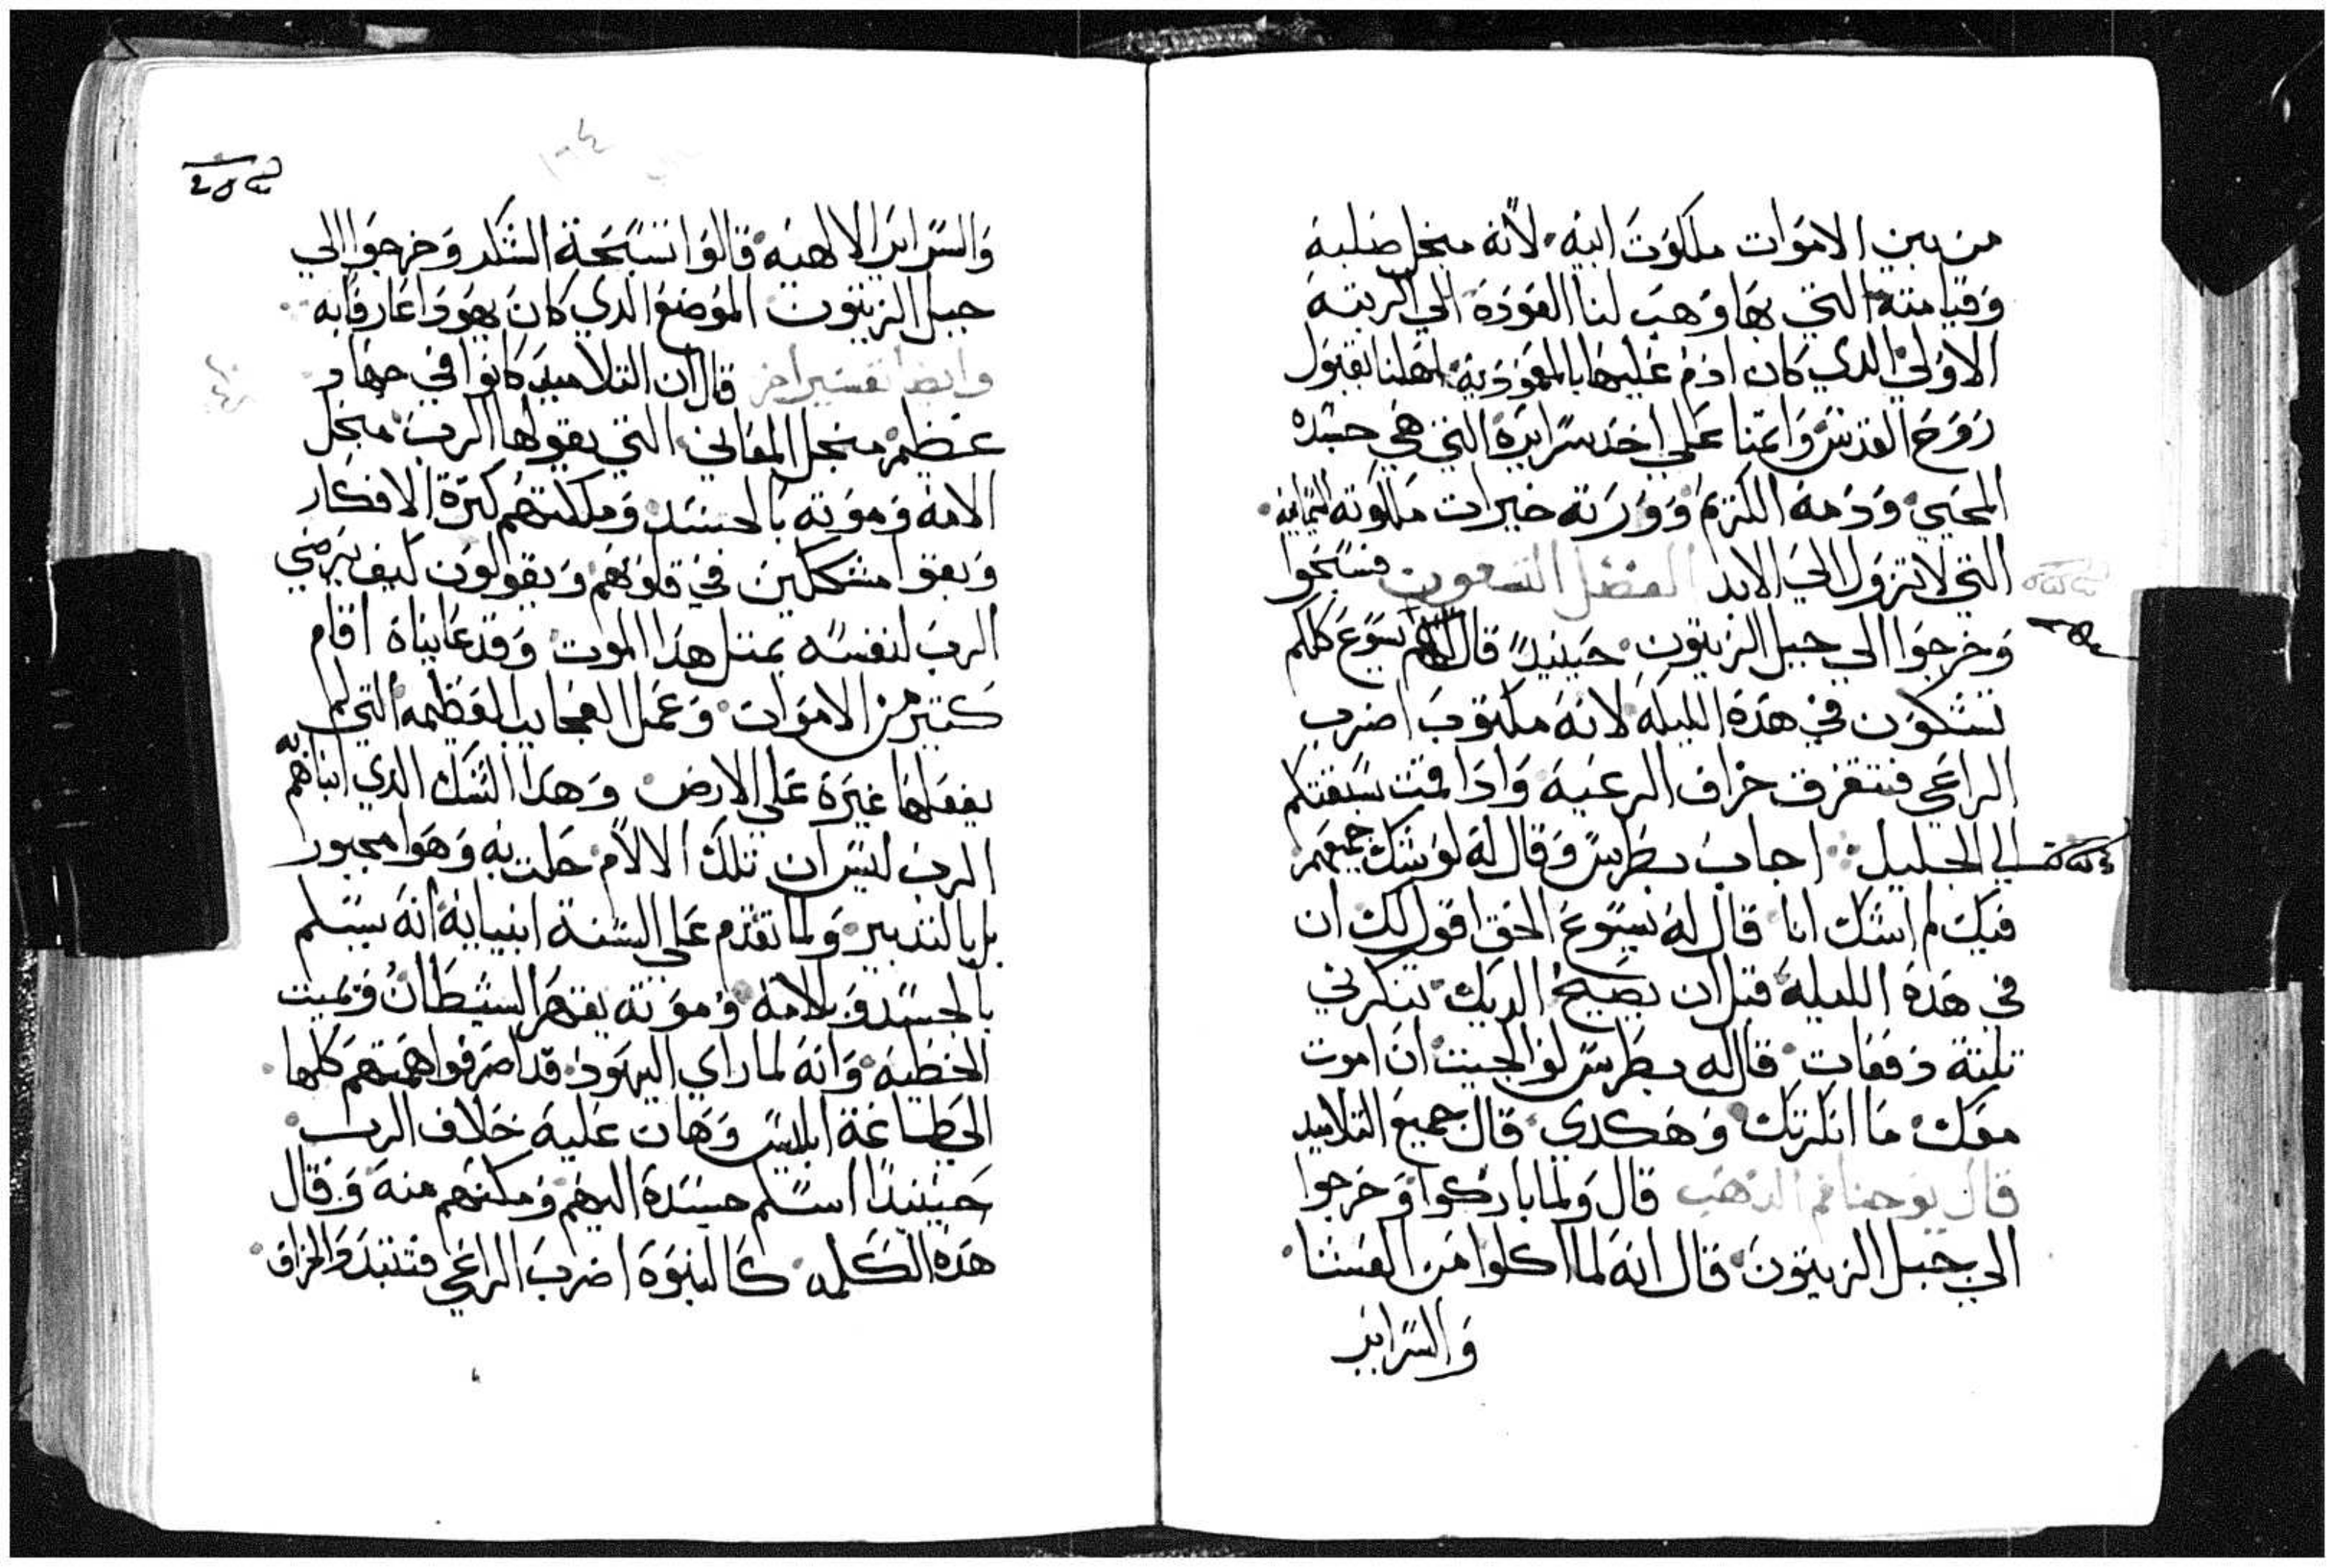 من بين الاموات ملكوت ابيه لانه منجل صلبه
وقيامته التي بها وهب لنا العودة الي الرتبه
الاولي الدي كان ادم عليها بالمعموديه اهلنا بقبول
روح القدس وايمنا علي اخد سرايره التي هي جسده
المحيي ودمه الكريم وورته خيرات ملكوته السمايه
التي لا تزول الي الابد الفصل التسعون فسبحوا
وخرجوا الي جبل الزيتون حينيدٍ قال لهم يسوع كلكم
تشكون في هده الليله لانه مكتوب اضرب
الراعي فتتفرق خراف الرعيه وادا قمت سبقتكم
الي الجليل اجاب بطرس وقال له لو شك جميعهم
فيك لم اشك انا قال له يسوع الحق اقول لك ان
في هده الليله قبل ان يصيح الديك تنكرني
تلتة دفعات قال له بطرس لو الجيت ان اموت
معك ما انكرتك وهكدي قال جميع التلاميد
قال يوحنا فم الدهب قال ولما باركوا وخرجوا
الي جبل الزيتون قال انه لما اكلوا من العشا
والسراير
والسراير الالهيه قالوا تسبحة الشكر وخرجوا الي
جبل الزيتون الموضع الدي كان يهودا عارفا به
وايضا تفسير اخر قال ان التلاميد كانوا في جهاد
عظيم منجل المعاني التي يقولها الرب منجل
الامه وموته بالجسد وملكتهم كترة الافكار
وبقوا مشككين في قلوبهم ويقولون كيف يرضي
الرب لنفسه بمتل هدا الموت وقد عايناه اقام
كتير من الاموات وعمل العجايب العظيمه التي لم
يفعلها غيره علي الارض وهدا الشك الدي انباهم به
الرب ليس ان تلك الالام حلت به وهوا مجبور
بل بالتدبير ولما تقدم علي السنة انبيايه انه يسلم
بالجسد وبالامه وموته يقهر الشيطان ويميت
الخطيه وانه لما راي اليهود قد اصرفوا همتهم كلها
الي طاعة ابليس وهان عليه خلاف الرب
حينيدًا اسلم جسده اليهم ومكنهم منه وقال
هده الكلمه كالنبوه اضرب الراعي فتتبدد الخراف